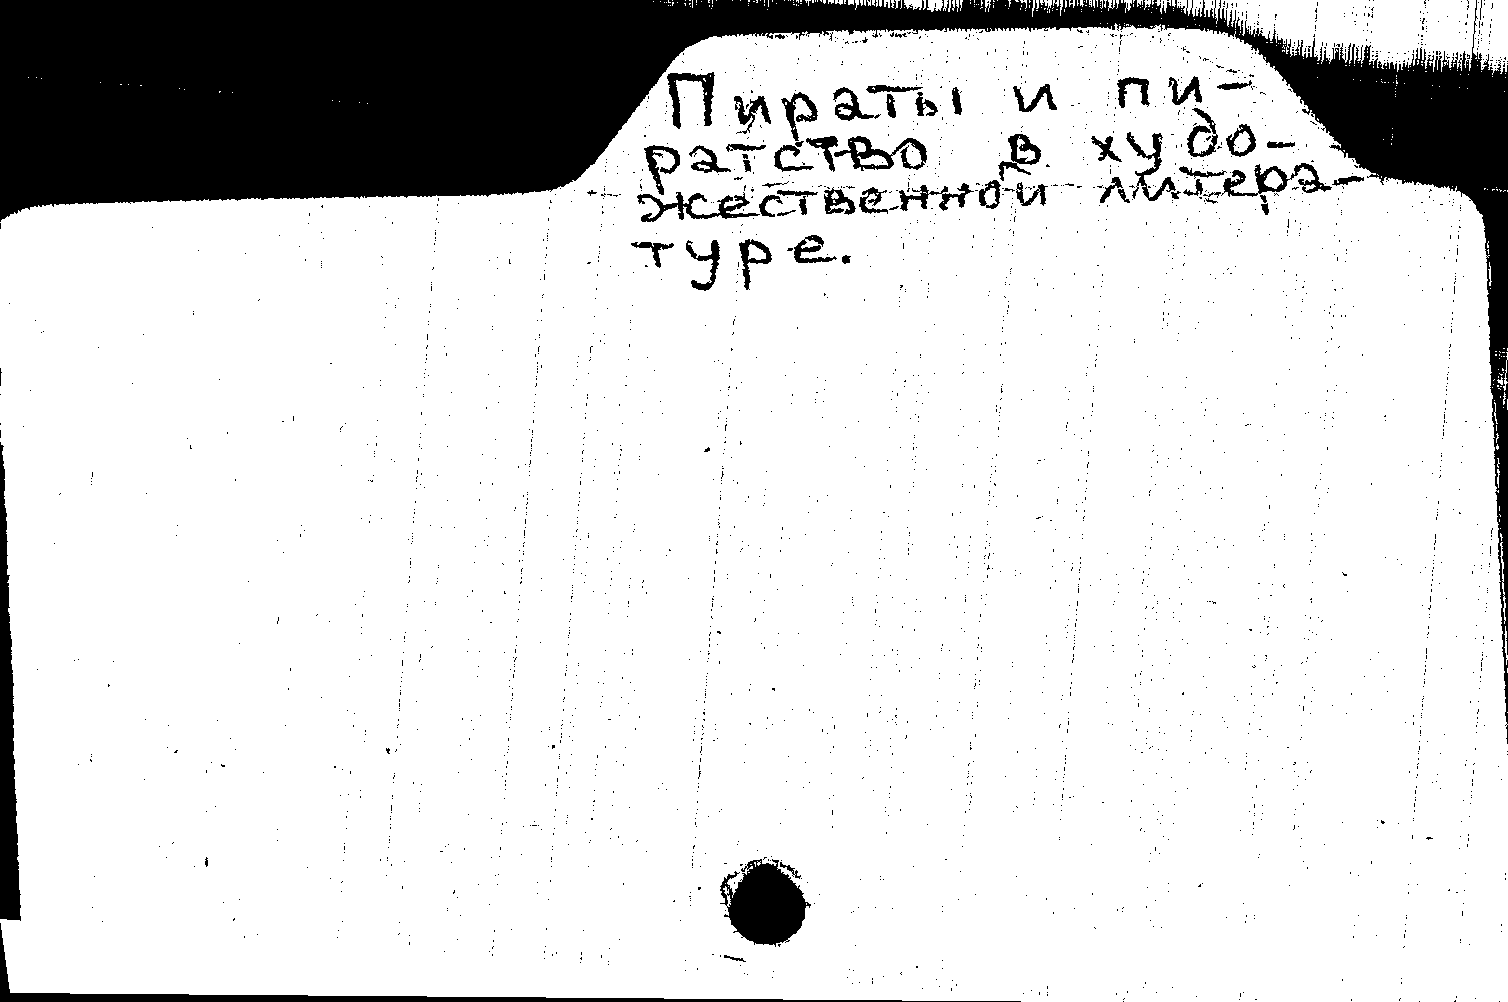 Пираты и пи-
ратство в худо-
жественной литера-
туре.